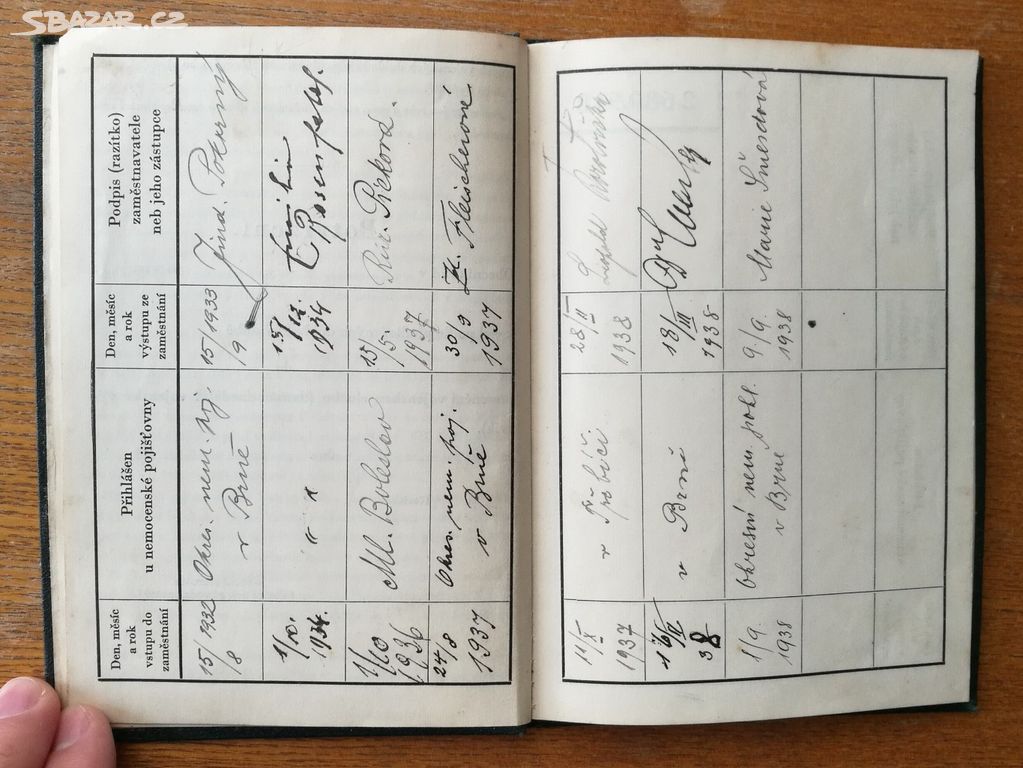 SBAZAR.CZ
Den, měsíc
a rok
vstupu do
zaměstnání
Přihlášen
u nemocenské pojišťovny
Den, měsíc
a rok
výstupu ze
zaměstnání
Podpis (razítko)
zaměstnavatele
neb jeho zástupce
15/1932
/8
Okres. nem. poj.
v Brně
15/1933
/9
Jind. Pokorný
1/10.
1934.
" "
15/12.
1934
1/10
1936
Ml. Boleslav
15/
/5.
1937
Růž. Píckova.
24/8
1937
Okres. nem. poj.
v Brně
30/9
1937
Fleischerové
14/X
1937
v Třebíči
28/II
1938
16/III
38
v Brně
18/III
1938
1/9.
1938
Okresní nem. pokl.
v Brně
9/9.
1938
Marie Šmerdová